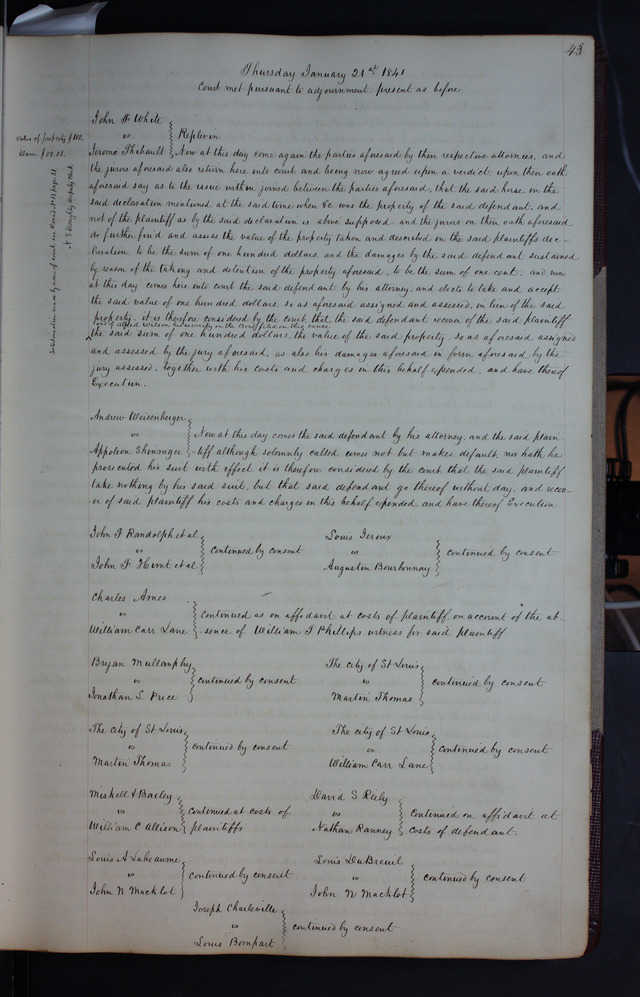 43
Thursday January 21st 1841
Court met pursuant to adjournment. present as before
John F White
vs } Replevin
Jerome Thibault } Now at this day come again the parties aforesaid by their respective attornies, and
value of property $100.
the jurors aforesaid also return here into court and being now agreed upon a verdict, upon their oath
aforesaid say as to the issue within joined between the parties aforesaid, that the said horse in the
said declaration mentioned, at the said time when &c was the property of the said defendant, and
not of the plaintiff as by the said declaration is above supposed. and the jurors on their oath aforesaid
do further find and assess the value of the property taken and described in the said plaintiffs dec-
laration, to be the sum of one hundred dollars, and the damages by the said defendant sustained
by reason of the taking and detention of the property aforesaid, to be the sum of one cent, and now
at this day comes here into court the said defendant by his attorney, and elects to take and accept
the said value of one hundred dollars, so as aforesaid assigned and assessed, in lieu of the said
property. it is therefore considered by the court, that the said defendant recover of the said plaintiff
the said sum of one hundred dollars, the value of the said property, so as aforesaid assigned
and assessed by the jury aforesaid, as also his damages aforesaid in form aforesaid by the
jury assessed, together with his costs and charges in this behalf expended, and have thereof
Execution.
Andrew Weisenberger
vs } Now at this day comes the said defendant by his attorney, and the said plain-
Appoleon Shininger } -tiff although solemnly called comes not but makes default, nor hath he
prosecuted his suit with effect it is therefore considered by the court that the said plaintiff
take nothing by his said suit, but that said defendant go thereof without day, and recov-
er of said plaintiff his costs and charges in this behalf expended, and have thereof Execution
John F Randolph et al
vs } continued by consent
John F Hunt et al
Louis Leroux
vs } continued by consent
Auguston Bourbonnay
Charles Ames
vs } Continued as on affidavit at costs of plaintiff, on account of the ab-
William Carr Lane } -sence of William T Phillips witness for said plaintiff
Bryan Mullanphy
vs } continued by consent
Jonathan L Price
The city of St Louis
vs } continued by consent
Martin Thomas
The city of St Louis
vs } continued by consent
Martin Thomas
The city of St Louis
vs } continued by consent
William Carr Lane
Miskell & Bailey
vs } continued at costs of
William C Allison } plaintiffs
David S Reily
vs } continued on affidavit at
Nathan Ranney } costs of defendant.
Louis A Labeaume
vs } continued by consent
John N Macklot
Louis DuBreuil
vs } continued by consent
John N Macklot
Joseph Charleville
vs } continued by consent
Louis Bompart